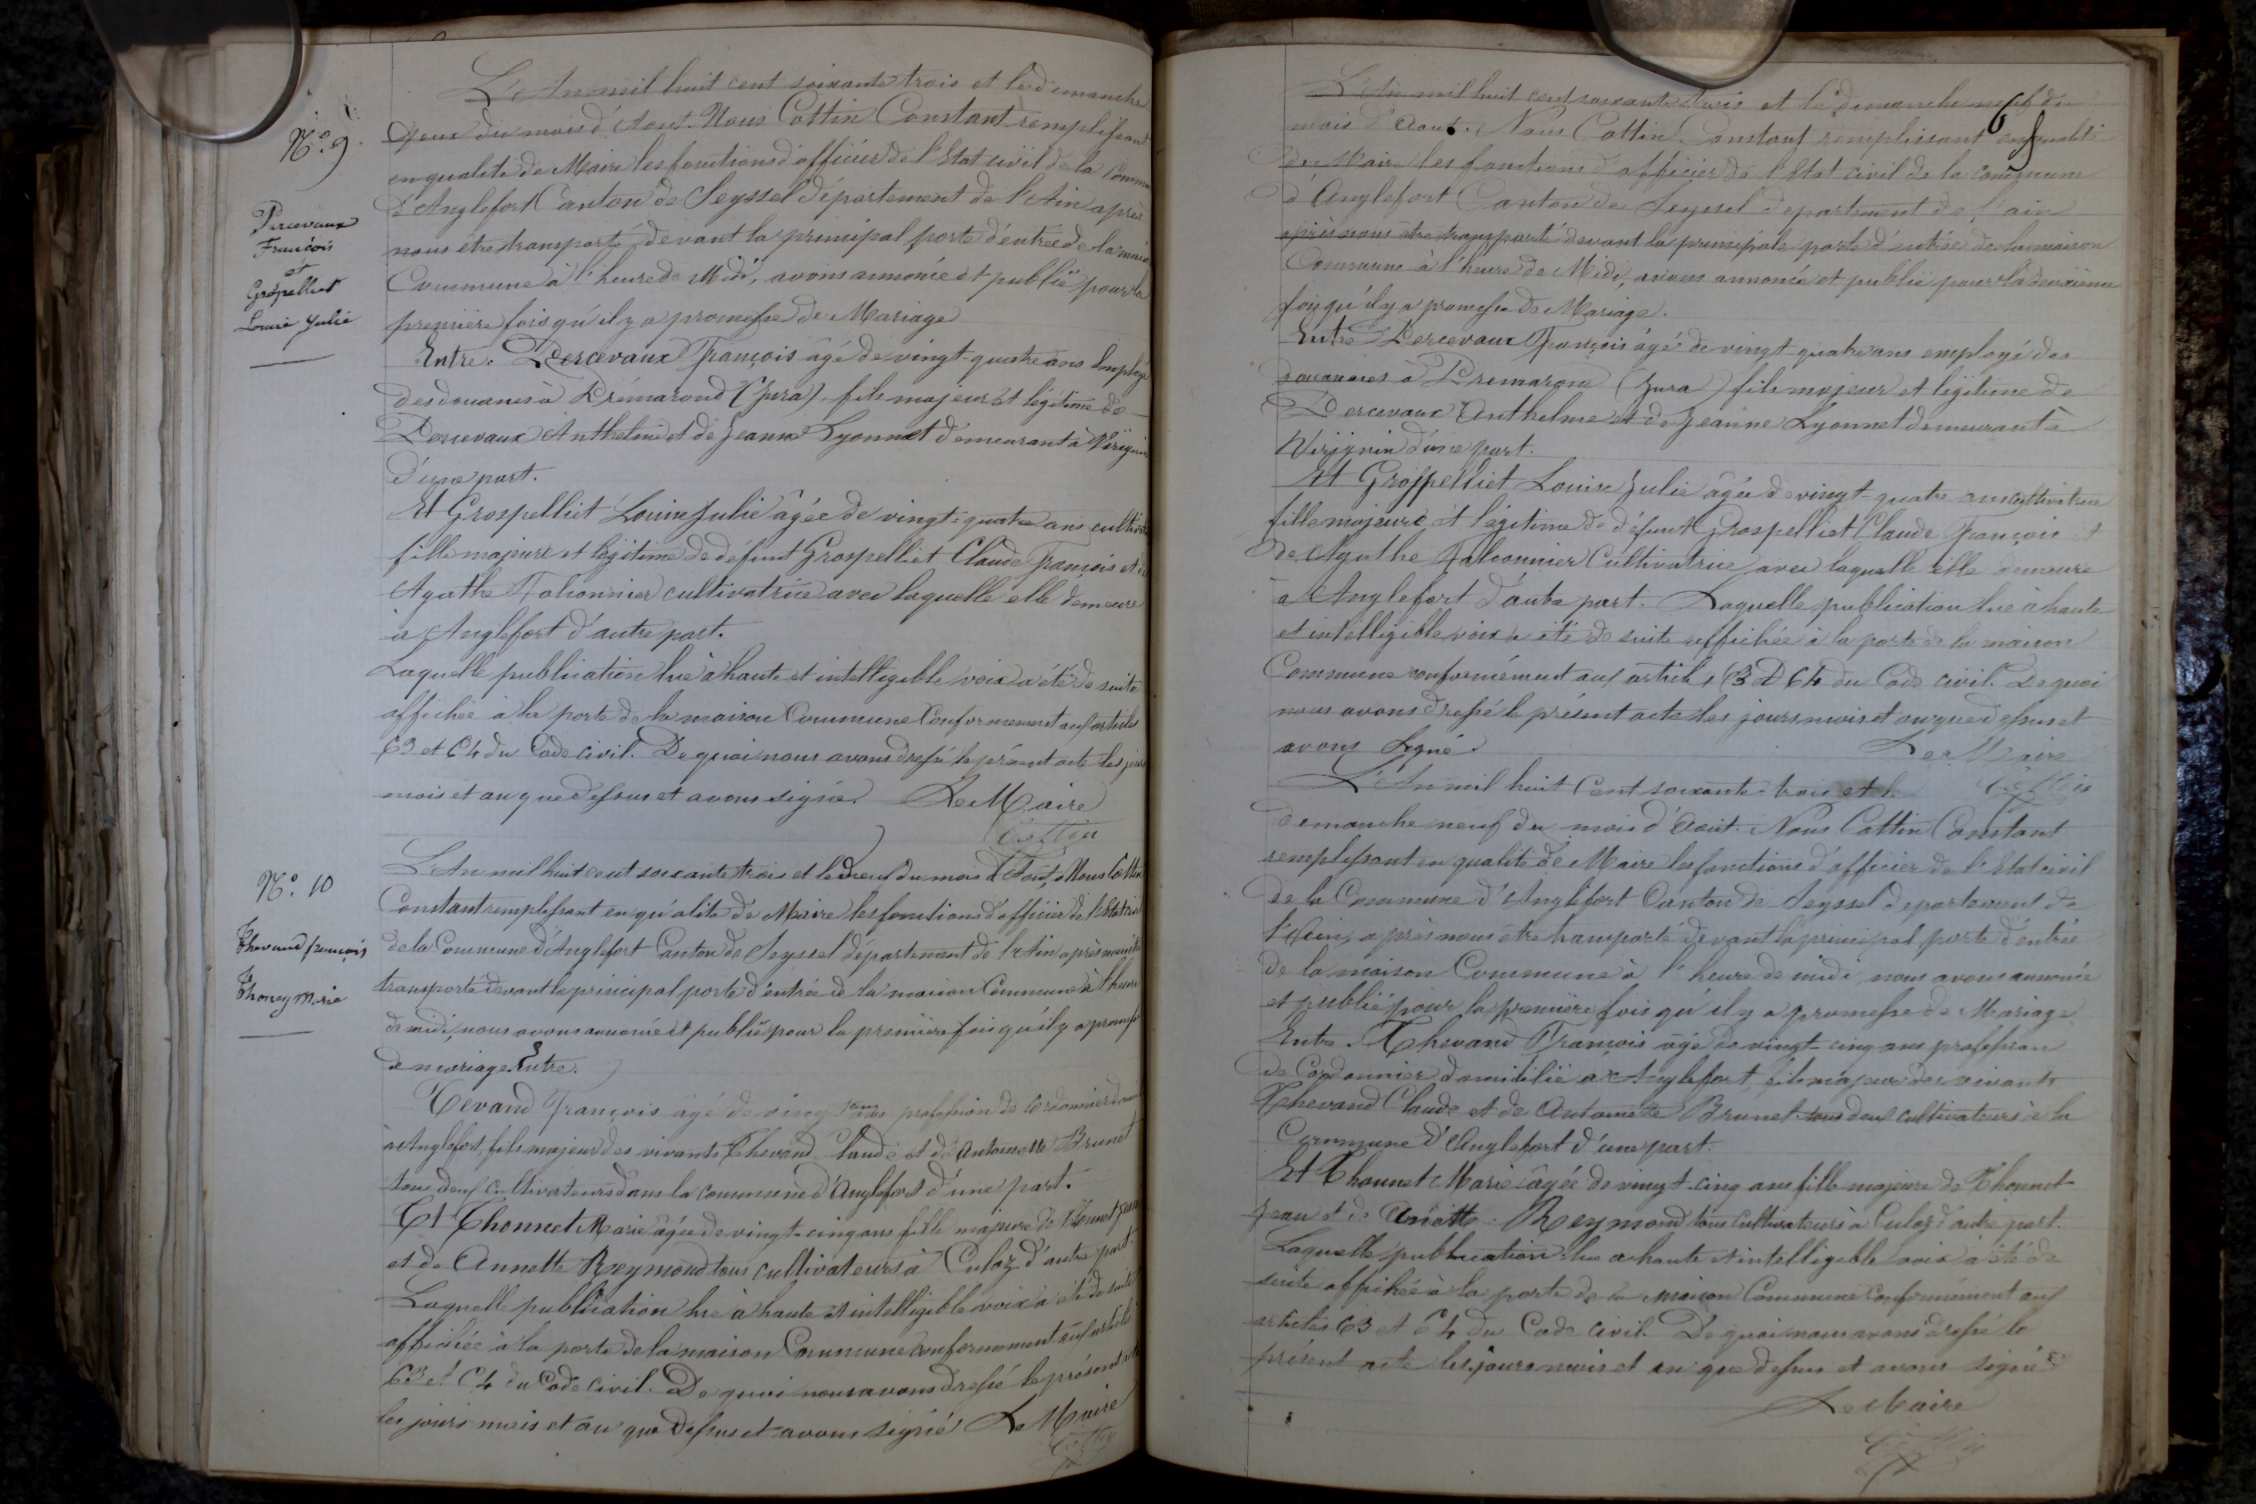 L'An mil huit cent soixante trois et le dimanche
deux du mois d'Aout. Nous Cottin Constant remplissant
en qualité de Maire les fonctions d'officier de l'Etat civil de la Commune
d'Anglefort Canton de Seyssel département de l'Ain après
nous être transporté devant la principal porte d'entrée de la maison
Commune à l'heure de Midi, avons annoncé et publié pour la
première fois qu'il y a promesse de Mariage
Entre. Percevaux François âgé de vingt-quatre ans Employé
des douanes à Prémanond (Jura), fils majeur et légitime de
Percevaux Anthelme et de Jeanne Lyonnet demeurant à Virignin
d'une part.
Et Grospelliet Louise Julie âgée de vingt-quatre ans cultivatrice
fille majeure et légitime de défunt Grospelliet Claude François et de
Agathe Falconnier cultivatrice avec laquelle elle demeure
à Anglefort d'autre part.
Laquelle publication lue à haute et intelligible voix a été de suite
affichée à la porte de la maison Commune Conformément aux articles
63 et 64 du Code civil. De quoi nous avons dressé le présent acte les jours
mois et an que dessus et avons signé. Le Maire
Cottin
N.º 9.
Percevaux
François
et
Grospelliet
Louise Julie
L'An mil huit cent soixante trois et le neuf du mois d'Aout, Nous Cottin
Constant remplissant en qu'alité de Maire les fonctions d'officier de l'Etat civil
de la Commune d'Anglefort Canton de Seyssel département de l'Ain après nous être
transporté devant la principal porte d'entrée de la maison Commune à l'heure
de midi, nous avons annoncé et publié pour la première fois qu'il y a promesse
de mariage Entre.
Thevand François âgé de vingt ans profession de Cordonnier
à Anglefort, fils majeur des vivants Thevand Claude et de Antoinette Brunet
tous deux cultivateurs dans la commune d'Anglefort d'une part.
Et Thonnet Marie âgée de vingt-cinq ans fille majeure de Thonnet Jean
et de Annette Reymond tous cultivateurs à Culoz d'autre part.
Laquelle publication lue à haute et intelligible voix a été de suite
affichée à la porte de la maison Commune conformément aux articles
63 et 64 du Code civil. De quoi nous avons dressé le présent acte
les jours mois et an que dessus et avons signé Le Maire
Cottin
N.º 10
Thevand françois
Thoney Marie
6
L'An mil huit cent soixante trois et le dimanche neuf du
mois d'Aout. Nous Cottin Constant remplissant en qualité
de Maire les fonctions d'officier de l'Etat civil de la commune
d'Anglefort Canton de Seyssel département de l'ain
après nous être transporté devant la principale porte d'entrée de la maison
Commune à l'heure de Midi, avons annoncé et publié pour la deuxième
fois qu'il y a promesse de Mariage.
Entre Percevaux François âgé de vingt-quatre ans employé des
douanes à Premanon (Jura) fils majeur et légitime de
Percevaux Anthelme et de Jeanne Lyonnet demeurant à
Virignin d'une part.
Et Grospelliet Louise Julie âgée de vingt-quatre ans cultivatrice
fille majeure et légitime de défunt Grospelliet Claude François et
de Agathe Falconnier Cultivatrice avec laquelle elle demeure
à Anglefort d'autre part. Laquelle publication lue à haute
et intelligible voix a été de suite affichée à la porte de la maison
Commune conformément aux articles 63 & 64 du Code civil. De quoi
nous avons dressé le présent acte les jours mois et an que dessus et
avons signé. Le Maire
Cottin
L'An mil huit Cent soixante-trois et le
dimanche neuf du mois d'Aout. Nous Cottin Constant
remplissant en qualité de Maire les fonctions d'officier de l'Etat civil
de la Commune d'Anglefort Canton de Seyssel département de
l'Ain, après nous être transporté devant la principal porte d'entrée
de la maison Commune à l'heure de midi, nous avons annoncé
et publié pour la première fois qu'il y a promesse de Mariage
Entre. Thevand François âgé de vingt-cinq ans profession
de Cordonnier domicilié à Anglefort, fils majeur des vivants
Thevand Claude et de Antoinette Brunet tous deux cultivateurs à la
Commune d'Anglefort d'une part.
Et Thonnet Marie âgée de vingt-cinq ans fille majeure de Thonnet
Jean et de Annette Reymond tous Cultivateurs à Culoz d'autre part.
Laquelle publication lue à haute et intelligible voix a été de
suite affichée à la porte de la maison Commune conformément aux
articles 63 et 64 du Code civil. De quoi nous avons dressé le
présent acte les jours mois et an que dessus et avons signé
Le Maire
Cottin